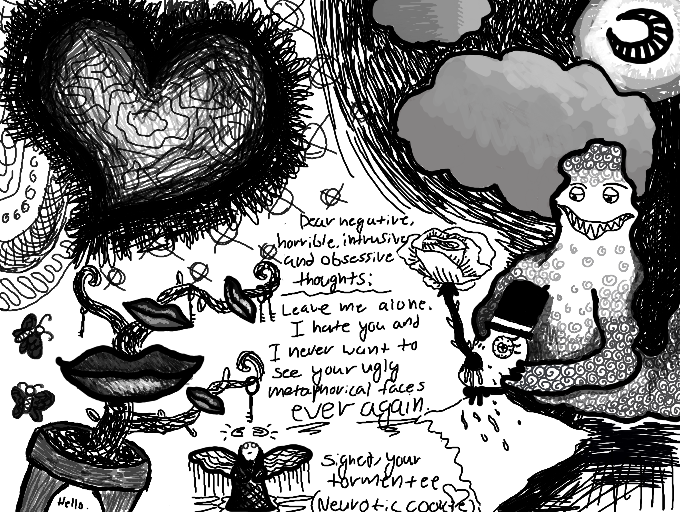 Dear negative,
horrible, intrusive
and obsessive
thoughts:
Leave me alone.
I hate you and
I never want to
see your ugly
metaphorical faces
ever again.
signed, your
tormentee
(Neurotic cookie)
Hello.